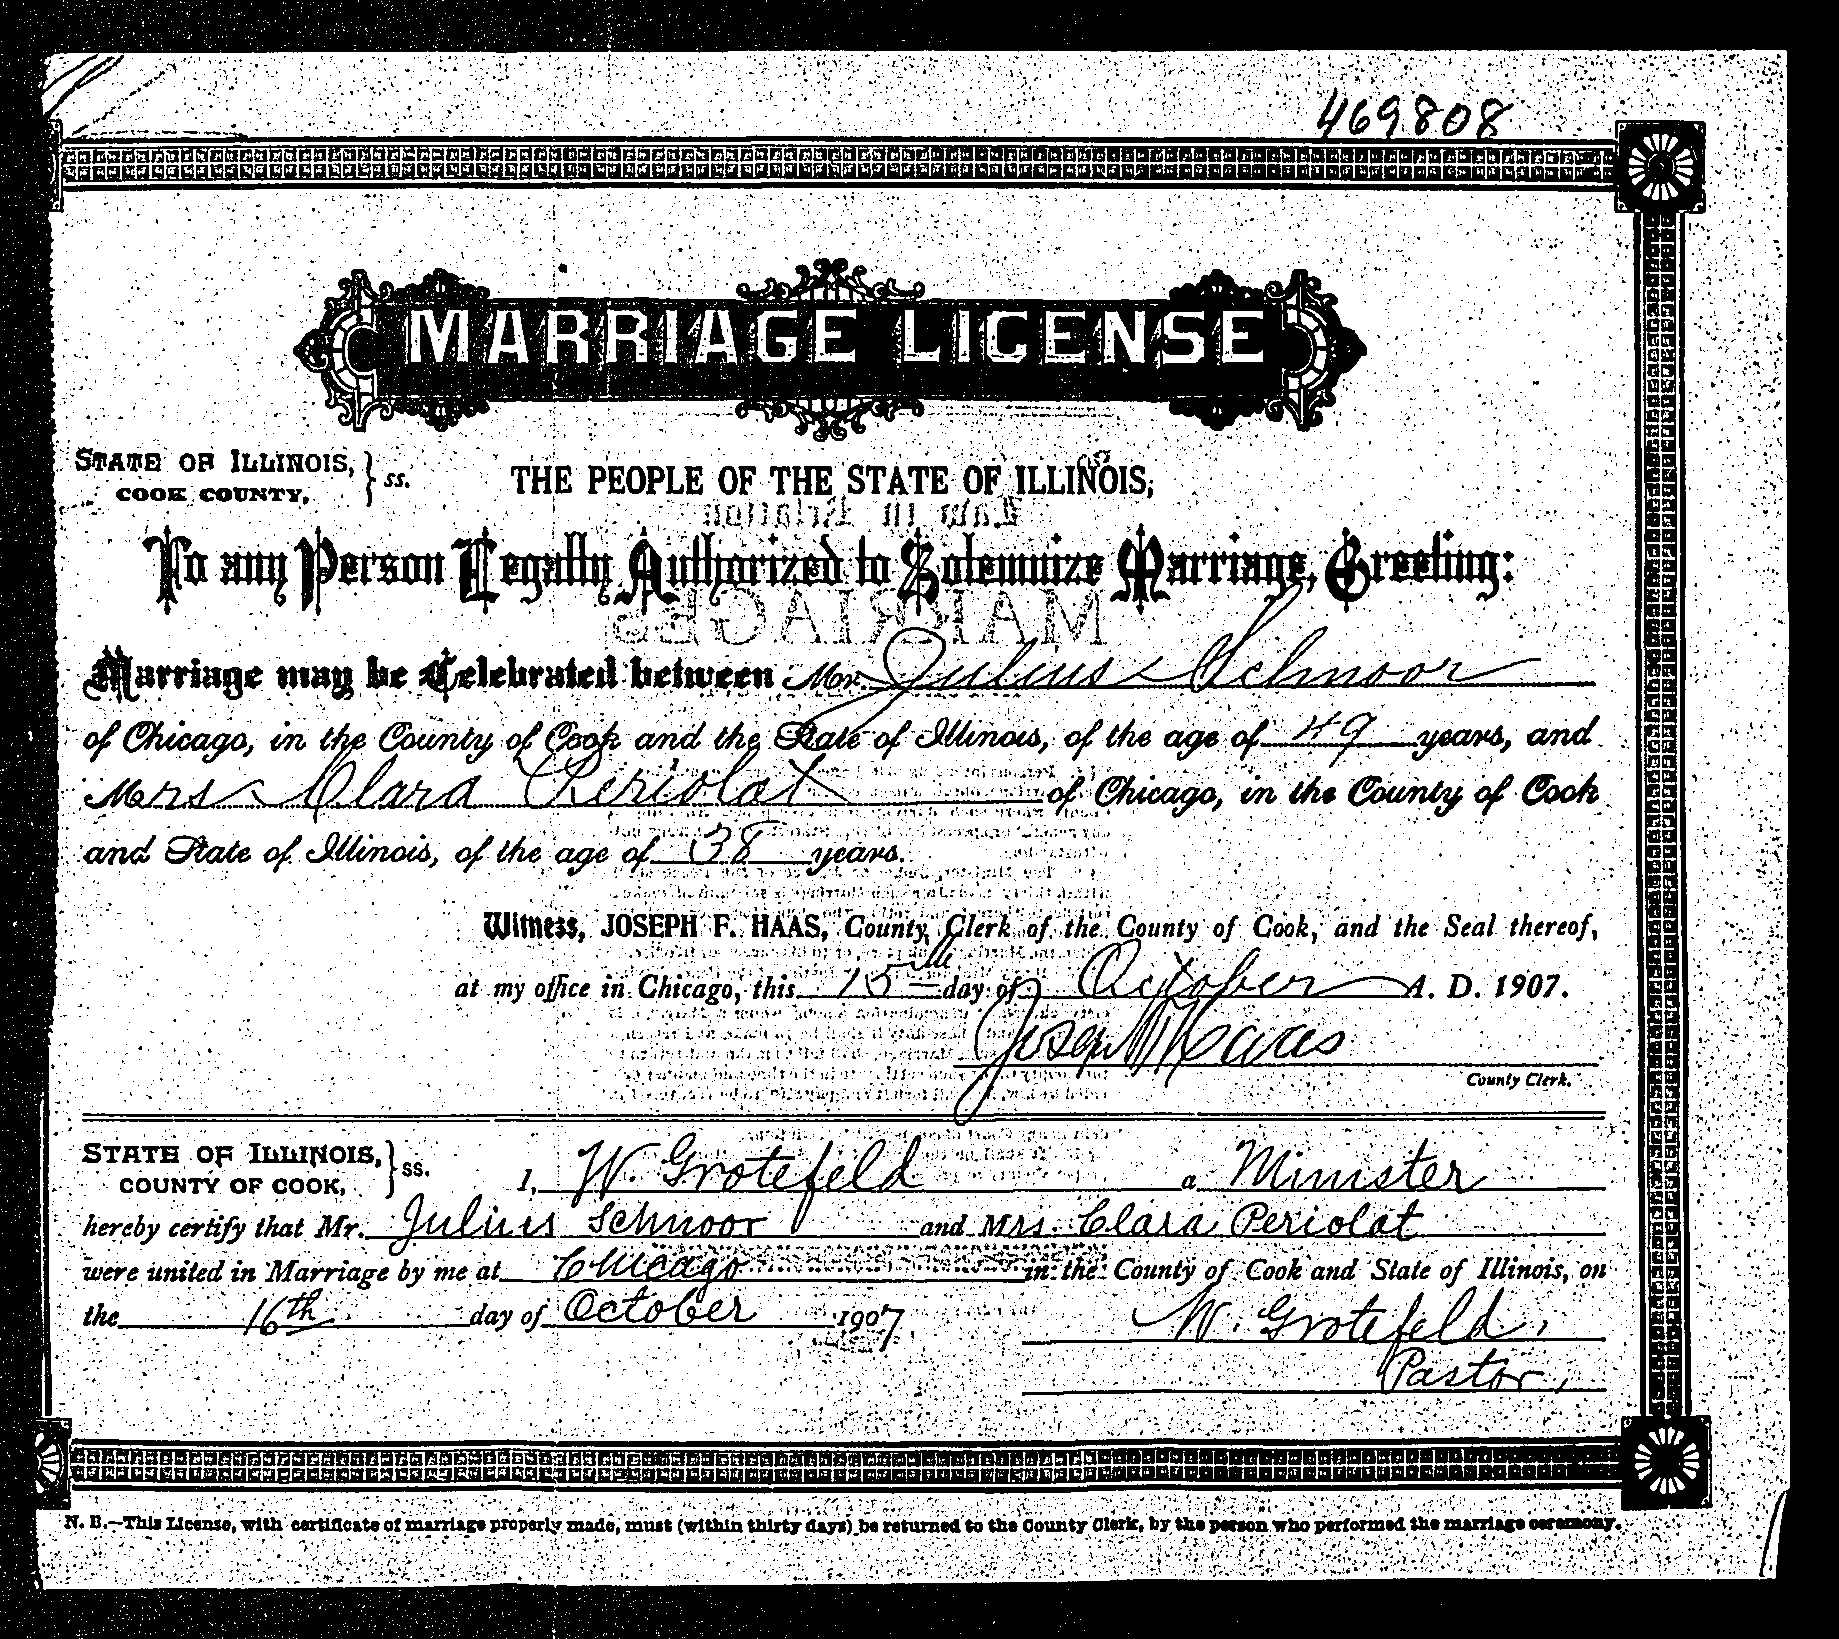 469808
MARRIAGE LICENSE
STATE OF ILLINOIS, } ss.
COOK COUNTY,
THE PEOPLE OF THE STATE OF ILLINOIS,
To any Person Legally Authorized to Solemnize Marriage, Greeting:
Marriage may be Celebrated between Mr. Julius Schnoor
of Chicago, in the County of Cook and the State of Illinois, of the age of 49 years, and
Mrs Clara Periolat of Chicago, in the County of Cook
and State of Illinois, of the age of 38 years.
Witness, JOSEPH F. HAAS, County Clerk of the County of Cook, and the Seal thereof,
at my office in Chicago, this 15th day of October A. D. 1907.
Joseph F Haas
County Clerk.
STATE OF ILLINOIS, } ss.
COUNTY OF COOK,
I, W. Grotefeld a Minister
hereby certify that Mr. Julius Schnoor and Mrs. Clara Periolat
were united in Marriage by me at Chicago in the County of Cook and State of Illinois, on
the 16th day of October 1907
W. Grotefeld,
Pastor,
N. B.—This License, with certificate of marriage properly made, must (within thirty days) be returned to the County Clerk, by the person who performed the marriage ceremony.